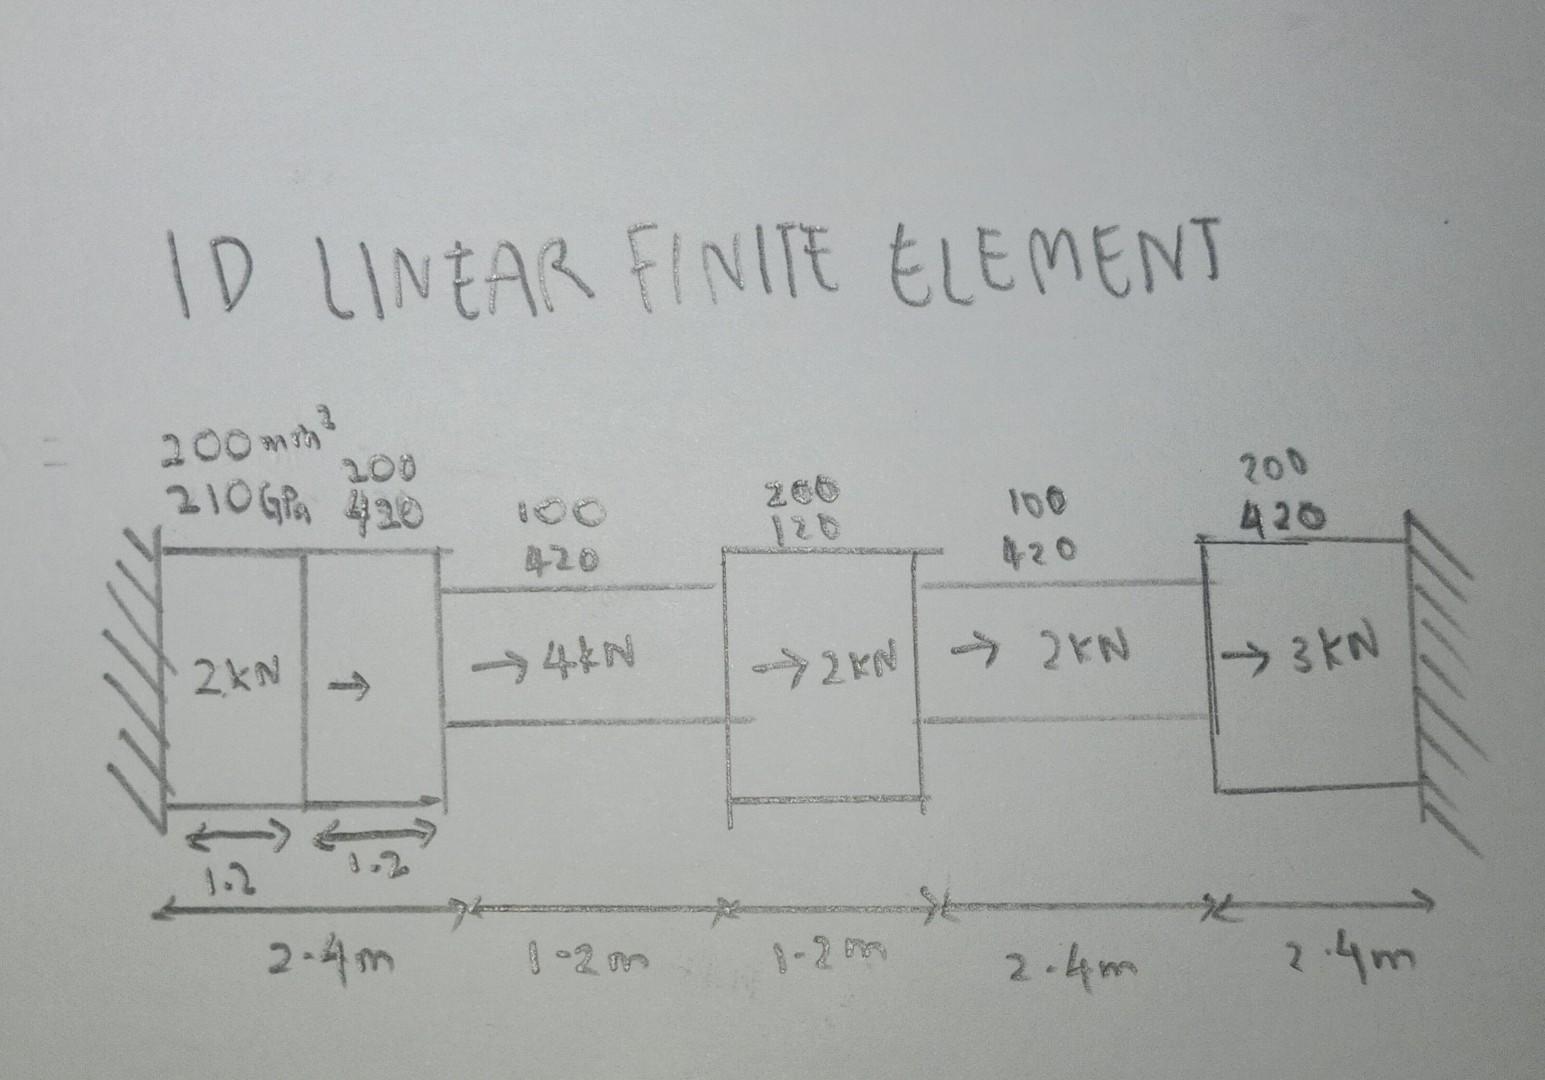 1D LINEAR FINITE ELEMENT
200mm²
210GPa
200
420
100
420
200
120
100
420
200
420
2kN
→
→ 4kN
→ 2kN
→ 2kN
→ 3kN
1.2
1.2
2.4m
1.2m
1.2m
2.4m
2.4m